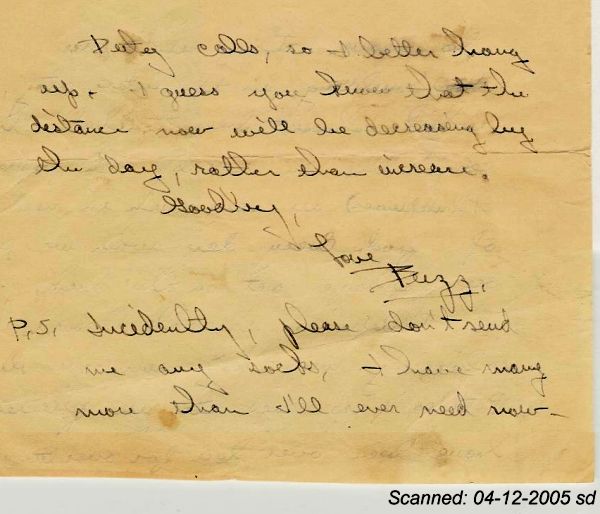 Duty calls, so I better hang
up. I guess you know that the
distance now will be decreasing by
the day, rather than increase.
Goodbye,
Love
P.S. Incidently, please don't send
me any socks, I have many
more than I'll ever need now—
Scanned: 04-12-2005 sd